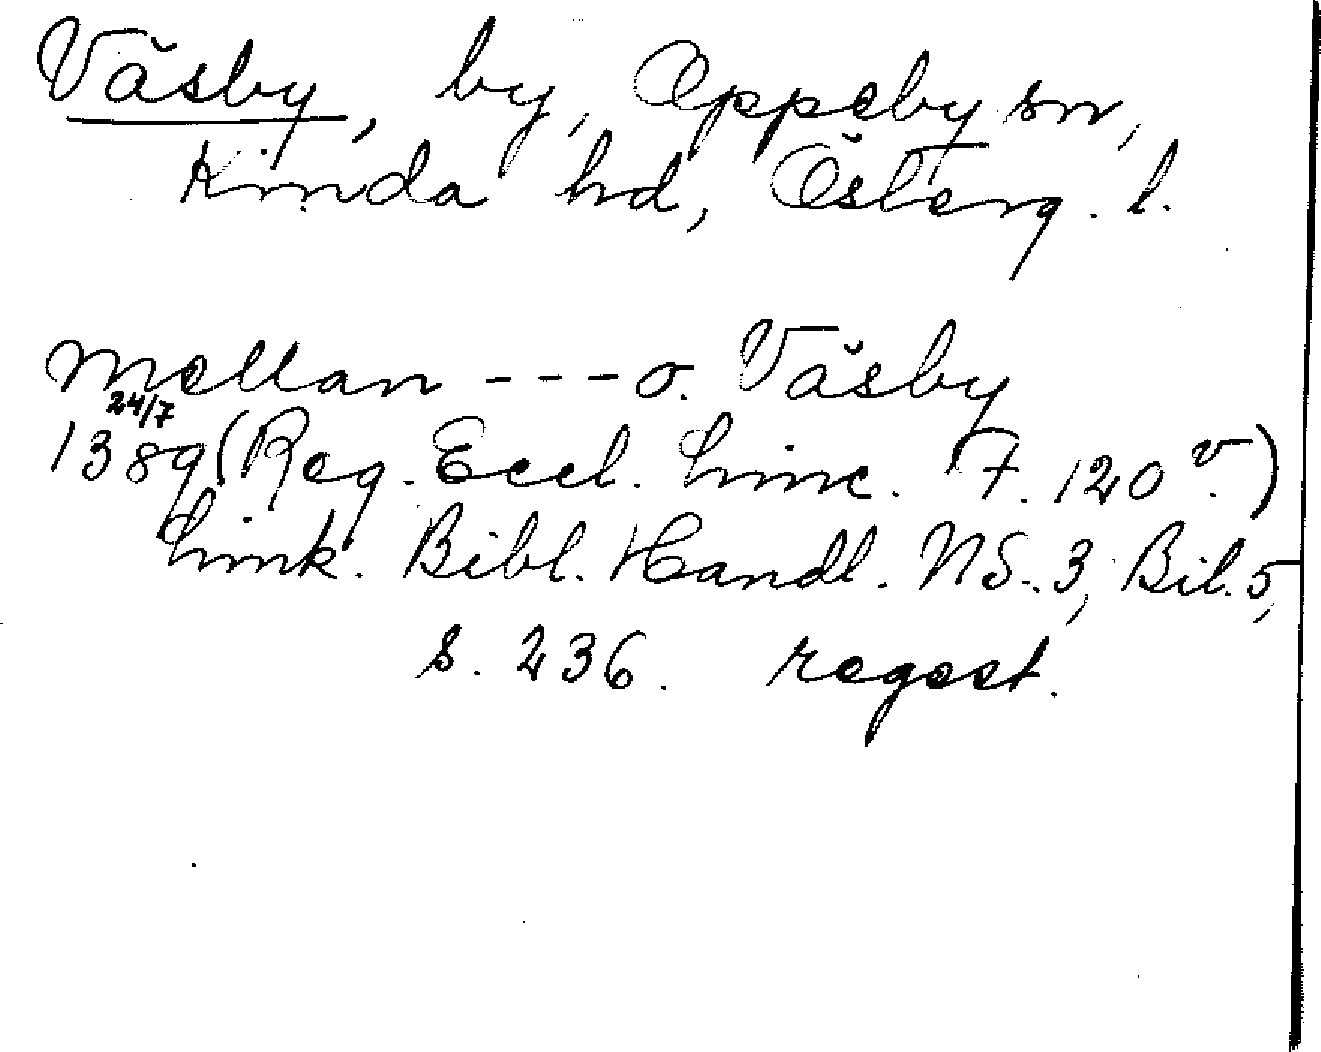 Väsby, by, Oppeby sn,
Kinda hd, Österg. l.
Mellan --- o. Väsby
24/7
1389 (Reg. Eccl. Linc. F. 120 v.)
Link. Bibl. Handl. NS. 3, Bil. 5,
s. 236. regest.